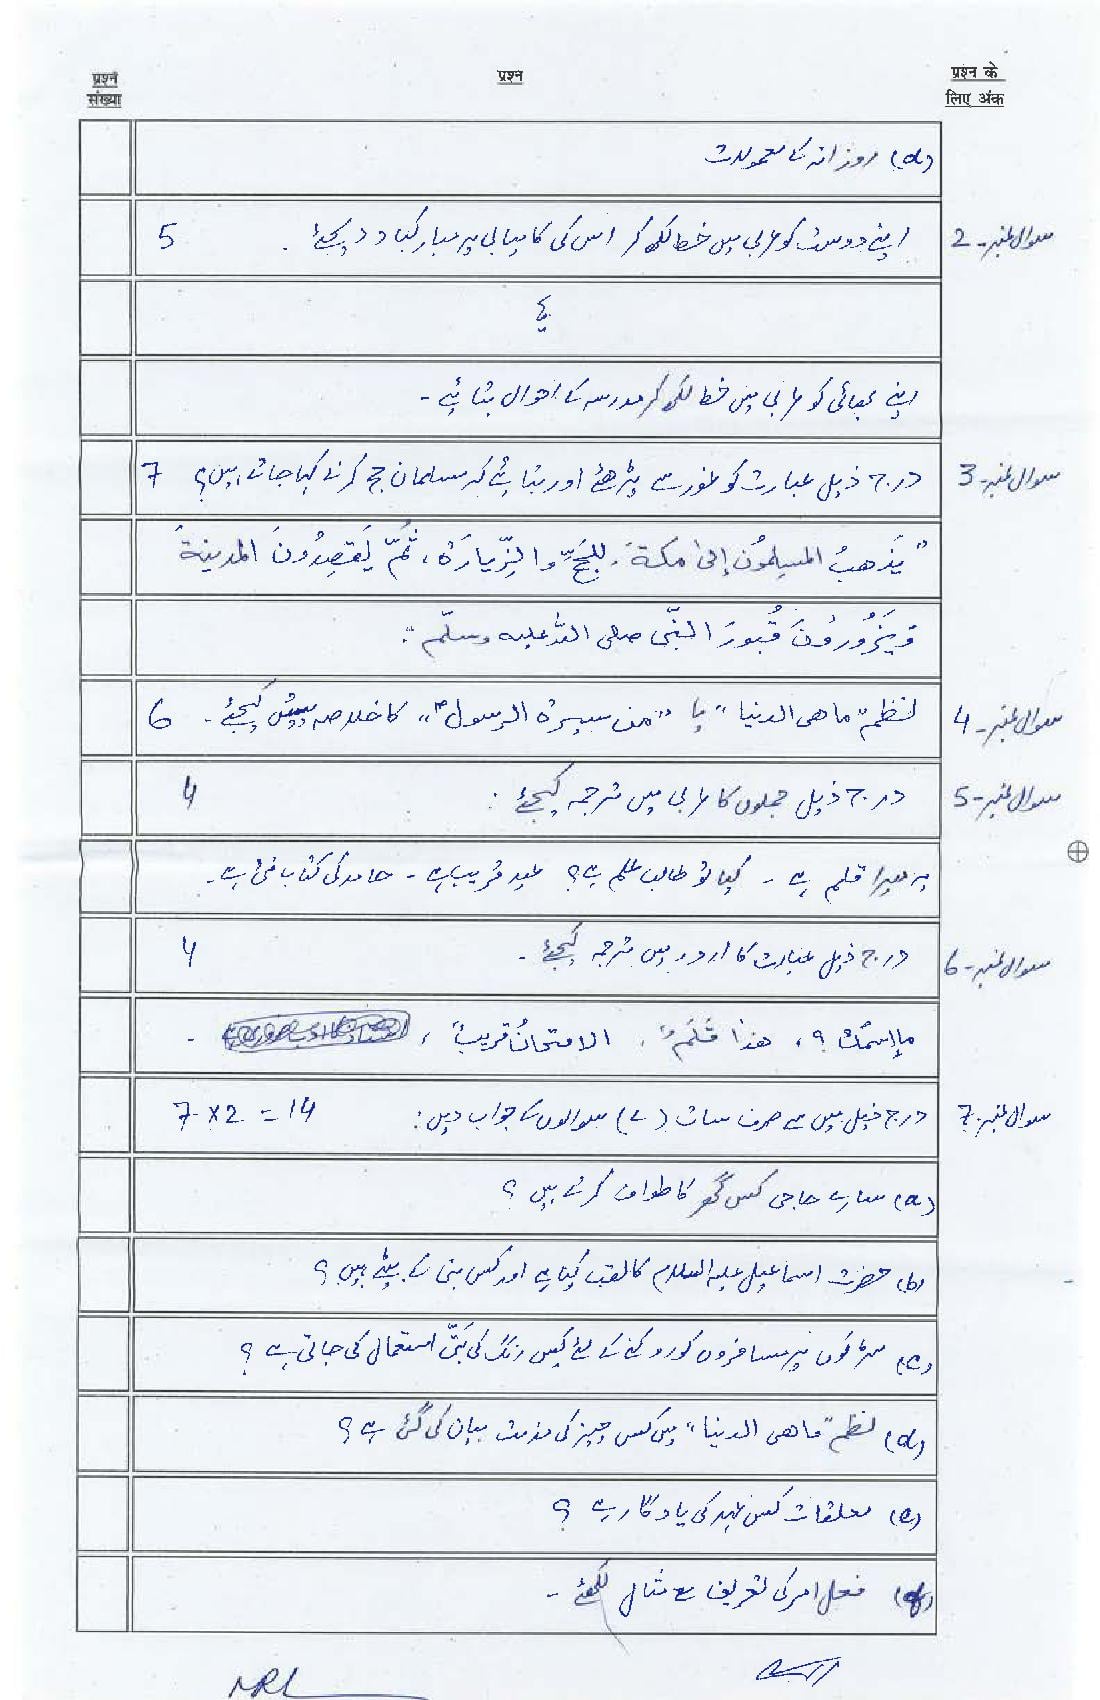 प्रश्न संख्या
प्रश्न
प्रश्न के लिए अंक
(d) روزانہ کے معمولات
سوال نمبر-2 اپنے دوست کو عربی میں خط لکھ کر اس کی کامیابی پر مبارکباد دیجئے۔ 5
یا
اپنے بھائی کو عربی میں خط لکھ کر مدرسہ کے احوال بتائیے۔
سوال نمبر-3 درج ذیل عبارت کو غور سے پڑھئے اور بتائیے کہ مسلمان حج کرنے کہاں جاتے ہیں؟ 7
"يَذهبُ المسلمُون إلىٰ مكةَ للحَجِّ والزِّيارة، ثُمَّ يَقصِدُونَ المدينةَ
وَيَزُورُونَ قُبورَ النبّى صلى الله عليه وسلّم":
سوال نمبر-4 نظم "ماهى الدنيا" یا "من سيرة الرسول ؐ" کا خلاصہ پیش کیجئے۔ 6
سوال نمبر-5 درج ذیل جملوں کا عربی میں ترجمہ کیجئے: 4
یہ میرا قلم ہے ۔ کیا تو طالب علم ہے؟ عید قریب ہے ۔ حامد کی کتاب نئی ہے۔
سوال نمبر-6 درج ذیل عبارت کا اردو میں ترجمہ کیجئے۔ 4
ما إسمك؟، هذا قَلَمٌ، الامتحانُ قريبٌ، ۔
سوال نمبر-7 درج ذیل میں سے صرف سات (۷) سوالوں کے جواب دیں: 7×2=14
(a) سارے حاجی کس گھر کا طواف کرتے ہیں؟
(b) حضرت اسماعیل علیہ السلام کا لقب کیا ہے اور کس نبی کے بیٹے ہیں؟
(c) سڑکوں پر مسافروں کو روکنے کے لئے کس رنگ کی بَتّی استعمال کی جاتی ہے؟
(d) نظم "ماهى الدنيا" میں کس چیز کی مذمت بیان کی گئی ہے؟
(e) معلقات کس عہد کی یادگار ہے؟
(f) فعل امر کی تعریف مع مثال لکھئے۔